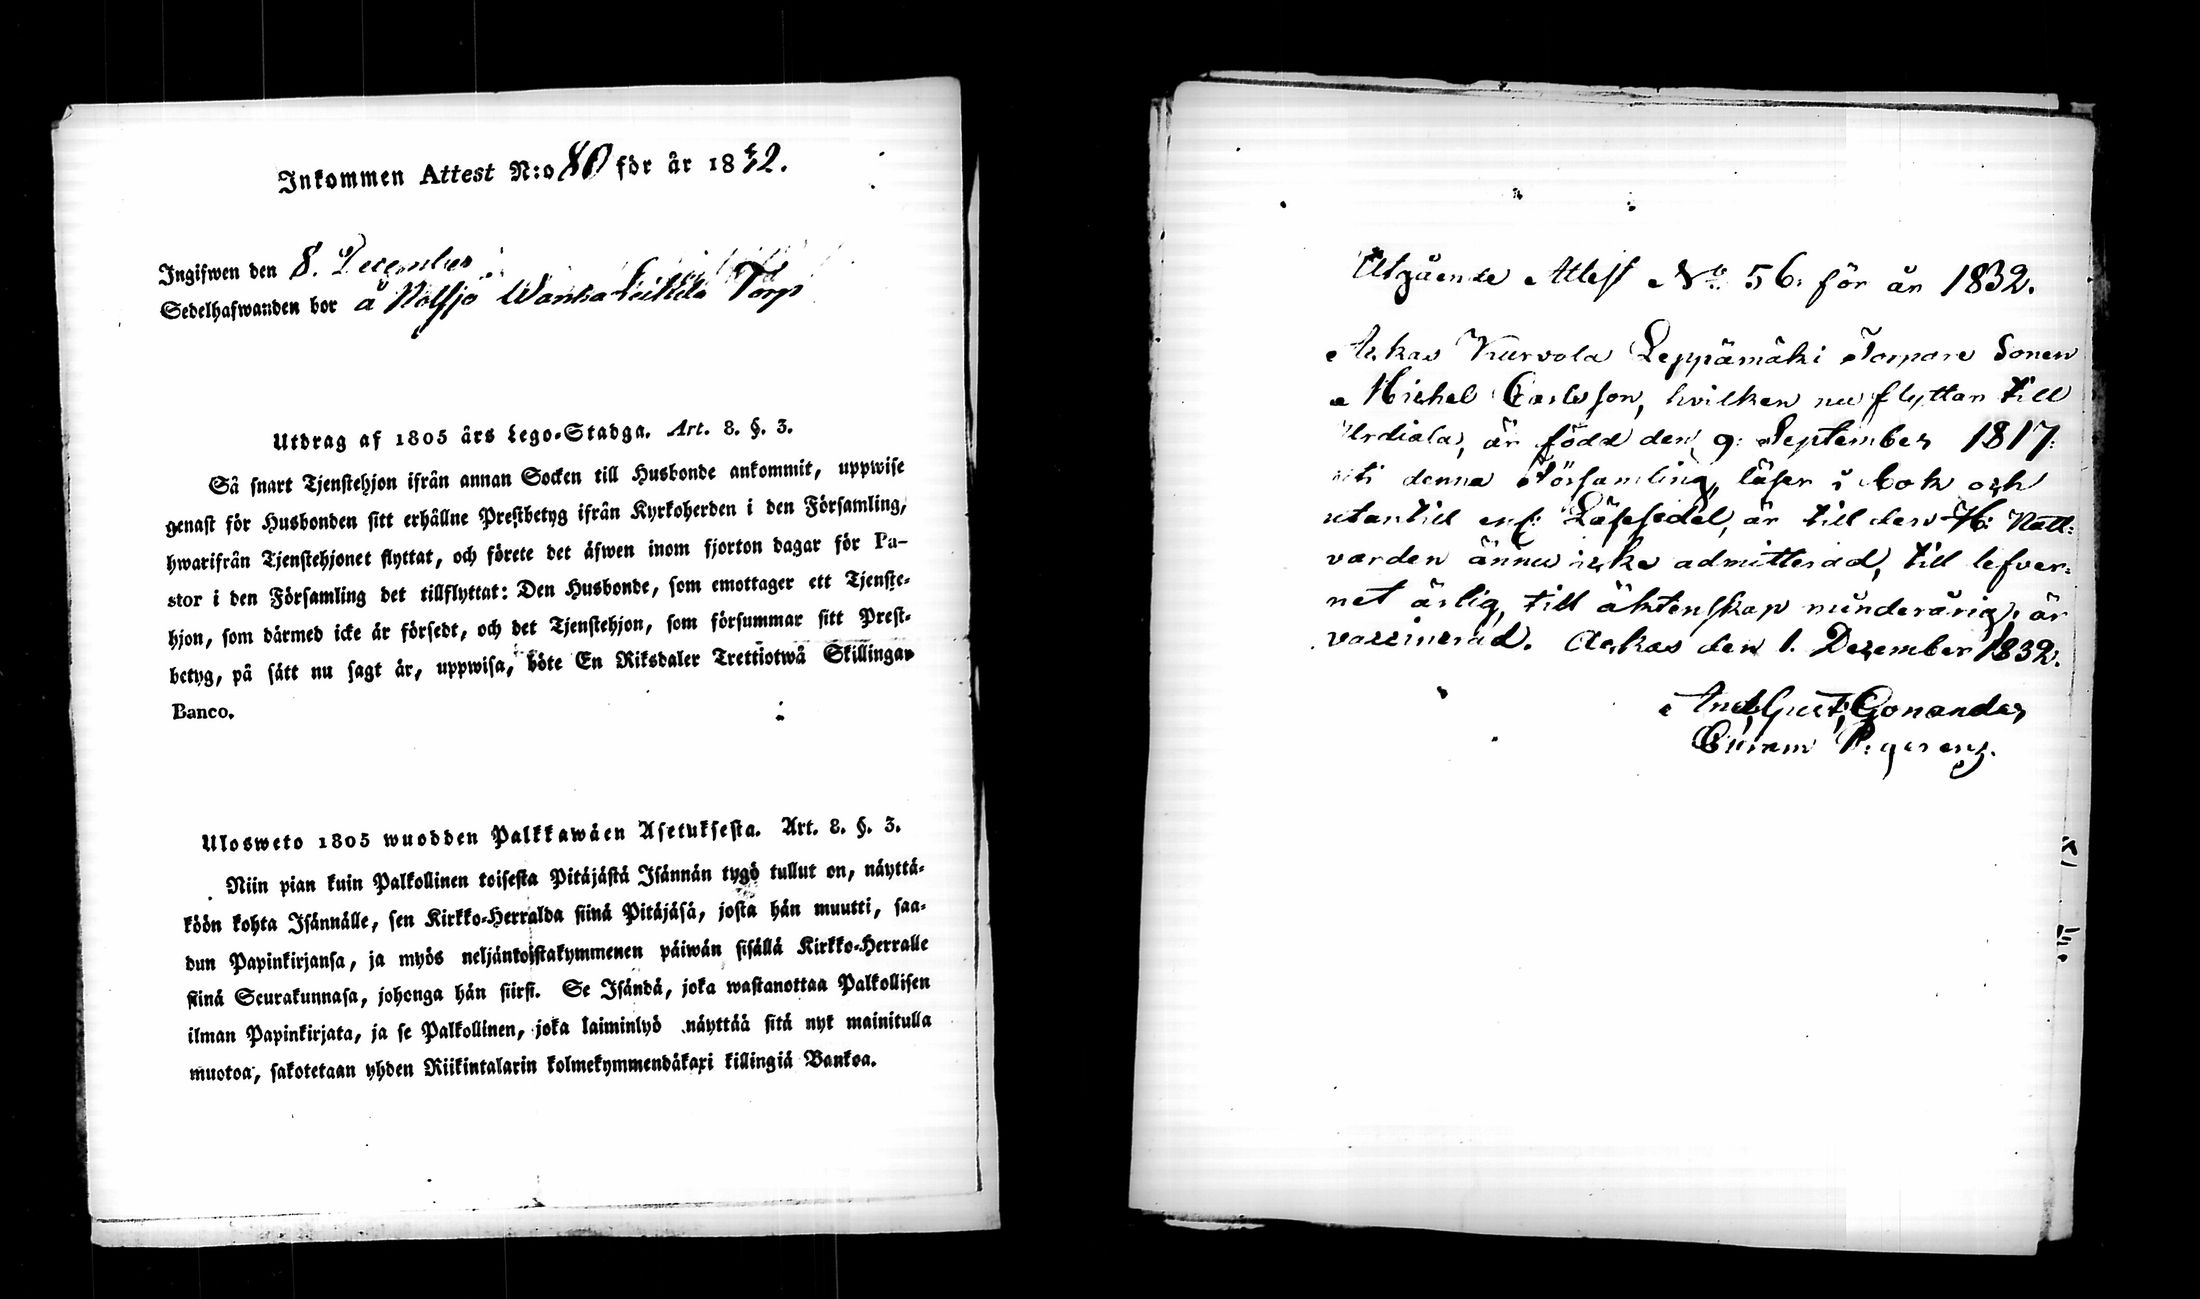 Inkommen Attest N:o 80 för år 1832.
Ingifwen den 8. December
Sedelhafwanden bor å Nolsjö Wanha Torp
Utdrag af 1805 års Lego-Stadga. Art. 8. §. 3.
Så snart Tjenstehjon ifrån annan Socken till Husbonde ankommit, uppwise
genast för Husbonden sitt erhållne Prestbetyg ifrån Kyrkoherden i den Församling,
hwarifrån Tjenstehjonet flyttat, och förete det äfwen inom fjorton dagar för Pa-
stor i den Församling det tillflyttat: Den Husbonde, som emottager ett Tjenste-
hjon, som därmed icke är försedt, och det Tjenstehjon, som försummar sitt Prest-
betyg, på sätt nu sagt är, uppwisa, böte En Riksdaler Trettiotwå Skillingar
Banco.
Ulosweto 1805 wuodden Palkkawäen Asetuksesta. Art. 8. §. 3.
Niin pian kuin Palkollinen toisesta Pitäjästä Isännän tygö tullut on, näyttä-
köön kohta Isännälle, sen Kirkko-Herralda siinä Pitäjäsä, josta hän muutti, saa-
dun Papinkirjansa, ja myös neljäntoistakymmenen päiwän sisällä Kirkko-Herralle
siinä Seurakunnasa, johonga hän siirsi. Se Isändä, joka wastanottaa Palkollisen
ilman Papinkirjata, ja se Palkollinen, joka laiminlyö näyttää sitä nyt mainitulla
muotoa, sakotetaan yhden Riikintalarin kolmekymmendäkaxi killingiä Bankoa.
Utgående Attest No 56. för år 1832.
Ackas Kurvola Leppämäki Torpare Sonen
Michel Carlsson, hvilken nu flyttar till
Urdiala, är född den 9. September 1817.
uti denna Församling, läser i bok och
utantill enl: Läsesedel, är till den H: Natt-
varden ännu icke admitterad, till lefver-
net ärlig, till äktenskap minderårig, är
vaccinerad. Ackas den 1. December 1832.
And. Gust. Gonander